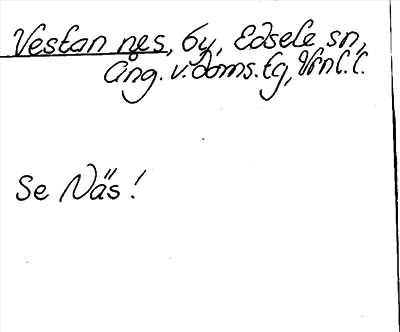 Vestan nes, by, Edsele sn,
Ång. v. doms. tg, Vrnl. l.
Se Näs!